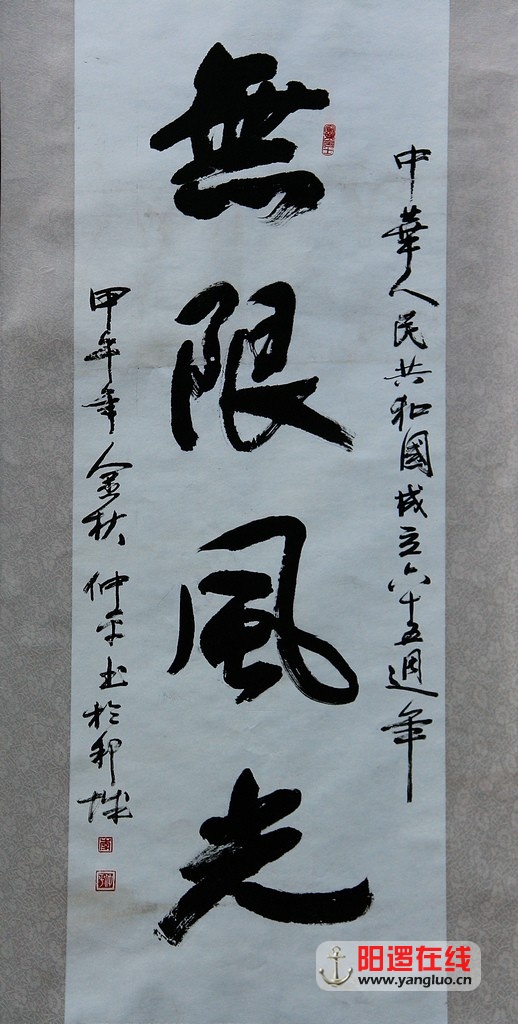 中華人民共和國成立六十五週年
無限風光
甲午年金秋 仲平书於邾城
阳逻在线
www.yangluo.cn